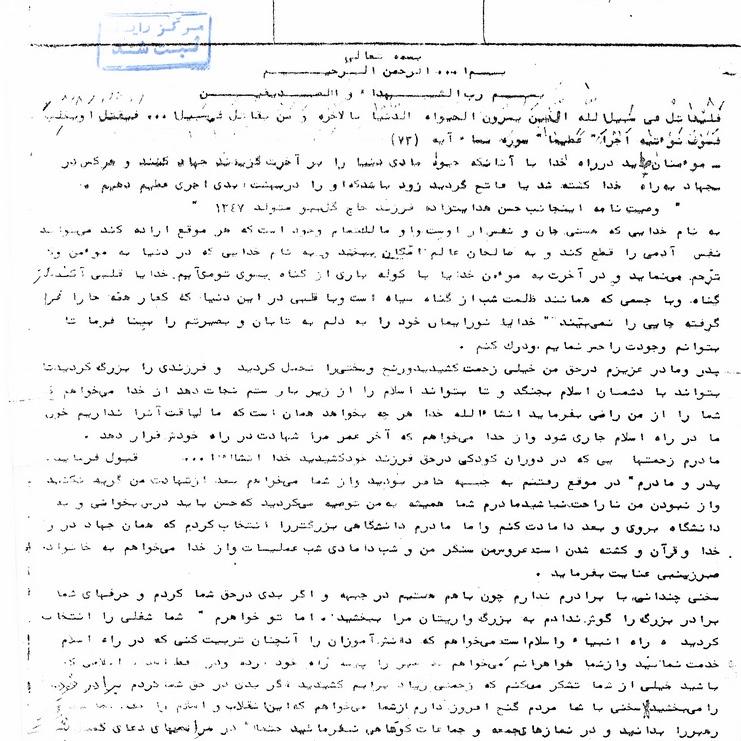 مرکز رایانه
ثبت شد
بسمه تعالی
بسم ا... الرحمن الرحیم
بسم رب الشهداء و الصدیقین
فلیقاتل فی سبیل الله الذین یشرون الحیوه الدنیا بالاخره و من یقاتل فی سبیل ا... فیقتل اویغلب
فسوف نوءتیه اجرا" عظیما" سوره نساء آیه (۷۳)
ـ موءمنان باید درراه خدا با آنانکه حیوه مادی دنیا را بر آخرت گزیدند جهاد کنند و هرکس در
جهاد به راه خدا کشته شد یا فاتح گردید زود باشد که او را در بهشت ابدی اجری عظیم دهیم .
" وصیت نامه اینجانب حسن هدایت زاده فرزند حاج گلبو متولد ۱۳۴۷ "
به نام خدایی که هستی جان و نفس از اوست و او مالک تمام وجود است که هر موقع اراده کند می‌تواند
نفس آدمی را قطع کند و به صالحان عالم امکان ببخشد و به نام خدایی که در دنیا به موءمن و
ترحم می‌نماید و در آخرت به موءمن خدایا با کوله باری از گناه بسوی تو می‌آییم . خدایا قلبی آکنده از
گناه وبا جسمی که همانند ظلمت شب از گناه سیاه است وبا قلبی در این دنیا که کفار همه جا را فرا
گرفته جایی را نمی‌بیند " خدایا نور ایمان خود را به دلم به تابان و بصیرتم را بینا فرما تا
بتوانم وجودت را حس نمایم ودرک کنم .
پدر ومادر عزیزم درحق من خیلی زحمت کشیدید ورنج وسختی را تحمل کردید و فرزندی را بزرگ کردید تا
بتواند با دشمنان اسلام بجنگد و تا بتواند اسلام را از زیر بار ستم نجات دهد از خدا می‌خواهم
شما را از من راضی بفرماید انشاءالله خدا هر چه بخواهد همان است که ما لیاقت آنرا نداریم خون
ما در راه اسلام جاری شود واز خدا می‌خواهم که آخر عمر مرا شهادت در راه خودش قرار دهد .
مادرم زحمتها یی که در دوران کودکی درحق فرزند خود کشیدید خدا انشاءا... قبول فرماید .
پدر و مادرم " در موقع رفتنم به جبهه حاضر بودید واز شما می‌خواهم بعد از شهادت من گریه نکنید
واز نبودن من ناراحت نباشید مادرم شما همیشه به من توصیه می‌کردید که حسن باید درس بخوانی و به
دانشگاه بروی و بعد دامادت کنم واما مادرم دانشگاهی بزرگتر را انتخاب کردم که همان جهاد در راه
خدا وقرآن و کشته شدن است عروس من سنگر من و شب دامادی شب عملیات واز خدا می‌خواهم به خانواده
صبر زینبی عنایت بفرماید .
سخنی چندانی با برادرم ندارم چون باهم هستیم در جبهه و اگر بدی درحق شما کردم و حرفهای شما
برادر بزرگ را گوش ندادم به بزرگواریتان مرا ببخشید . اما تو خواهرم " شما شغلی را انتخاب
کردید ه راه انبیاء واسلام است می‌خواهم که دانش آموزان را آنچنان تربیت کنی که در راه اسلام
خدمت نمائید واز شما خواهرانم می‌خواهم راه خود
باشید خیلی از شما تشکر می‌کنم که زحمتی زیاد برایم کشیدید اگر بدی در حق شما کردم برادر خود
را می‌بخشید سخنی با شما مردم گنج افروز دارم از شما می‌خواهم که این انقلاب و اسلام را
رهبر را بدانید و در نمازهای جمعه و جماعات کوتاهی نفرمائید حتما" در مراسم‌های دعای کمیل